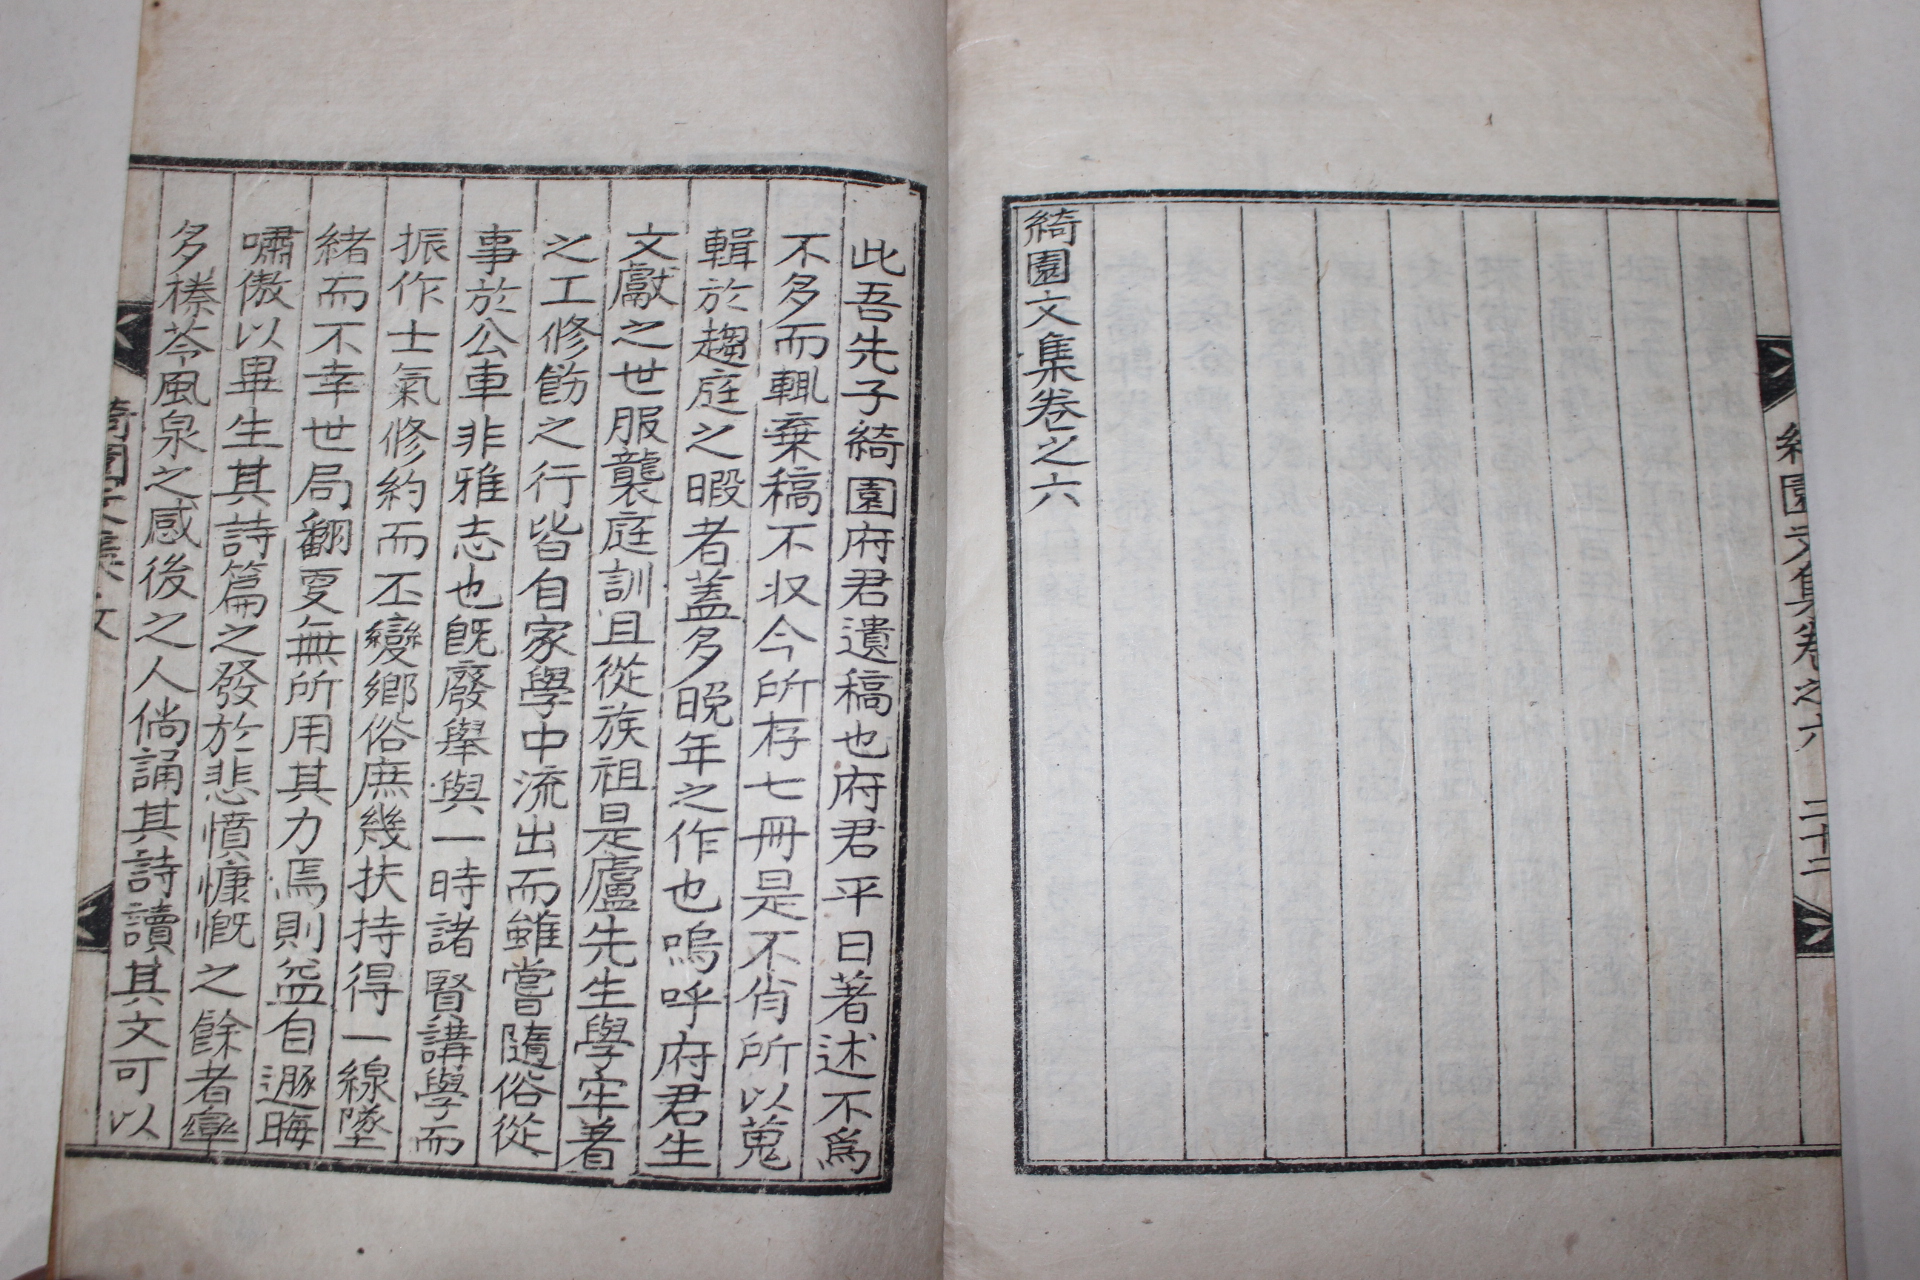 綺園文集卷之六 二十二
綺園文集卷之六
此吾先子綺園府君遺稿也府君平日著述不爲
不多而輒棄稿不収今所存七冊是不肖所以蒐
輯於趨庭之暇者蓋多晩年之作也嗚呼府君生
文獻之世服襲庭訓且從族祖是廬先生學牢著
之工修飭之行皆自家學中流出而雖嘗隨俗從
事於公車非雅志也旣廢擧與一時諸賢講學而
振作士氣修約而丕變鄉俗庶幾扶持得一線墜
緒而不幸世局翻變無所用其力焉則益自遯晦
嘯傲以畢生其詩篇之發於悲憤慷慨之餘者率
多榛苓風泉之感後之人倘誦其詩讀其文可以